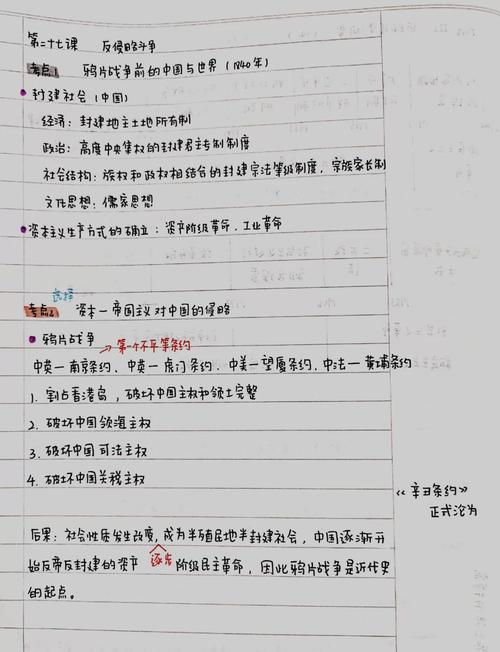 第二十七课 反侵略斗争
考点1 鸦片战争前的中国与世界（1840年）
封建社会（中国）
经济：封建地主土地所有制
政治：高度中央集权的封建君主专制制度
社会结构：族权和政权相结合的封建宗法等级制度，宗族家长制
文化思想：儒家思想
资本主义生产方式的确立：资产阶级革命，工业革命
选择
考点2 资本—帝国主义对中国的侵略
鸦片战争 → 第一个不平等条约
中英—南京条约、中英—虎门条约、中美—望厦条约、中法—黄埔条约
1. 割占香港岛，破坏中国主权和领土完整
2. 破坏中国领海主权
3. 破坏中国司法主权
4. 破坏中国关税主权
《辛丑条约》
正式沦为
后果：社会性质发生改变，成为半殖民地半封建社会，中国逐渐开
逐步
始反帝反封建的资产阶级民主革命，因此鸦片战争是近代史
的起点。